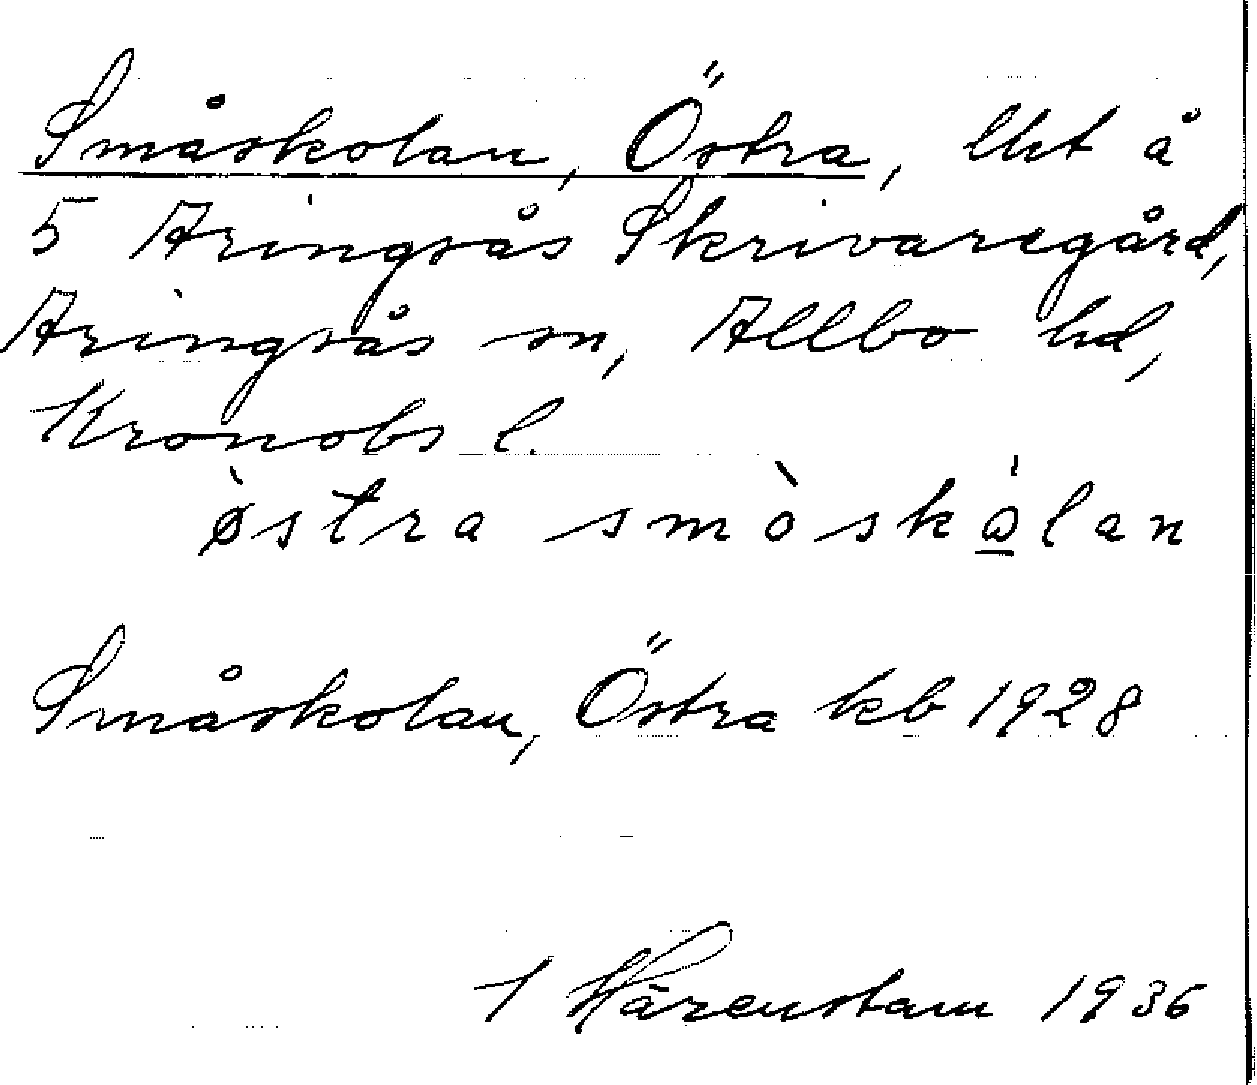 Småskolan, Östra, lht å
5 Aringsås Skrivaregård,
Aringsås sn, Allbo hd,
Kronobs l.
ø̀stra smòskó̲lan
Småskolan, Östra kb 1928
I Härenstam 1936